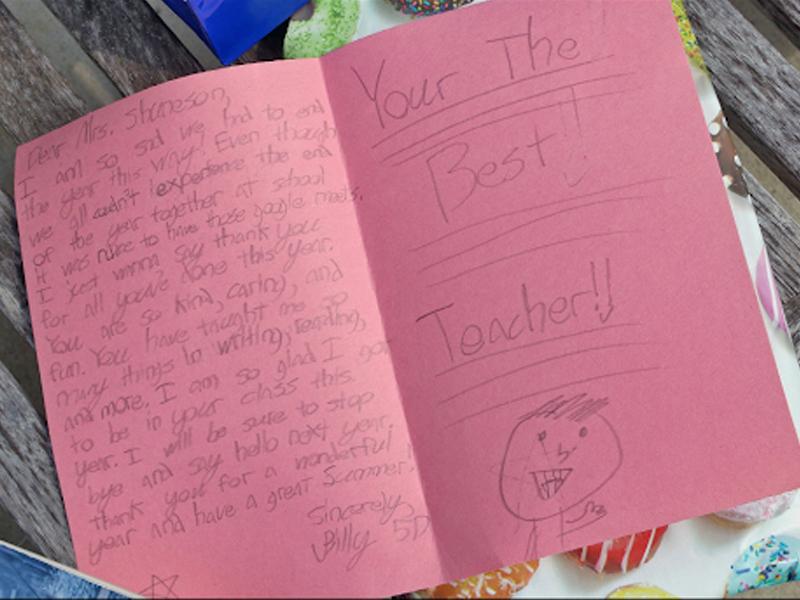 Dear Mrs. Shoneson,
I am so sad we had to end
the year this way! Even though
we all couldn't experience the end
of the year together at school
it was nice to have those google meets.
I just wanna say thank you
for all you've done this year.
You are so kind, caring, and
fun. You have taught me so
many things in writing, reading,
and more. I am so glad I got
to be in your class this
year. I will be sure to stop
bye and say hello next year.
thank you for a wonderful
year and have a great Summer!
Sincerely,
Billy 5D
Your The!!
Best!!
Teacher!!